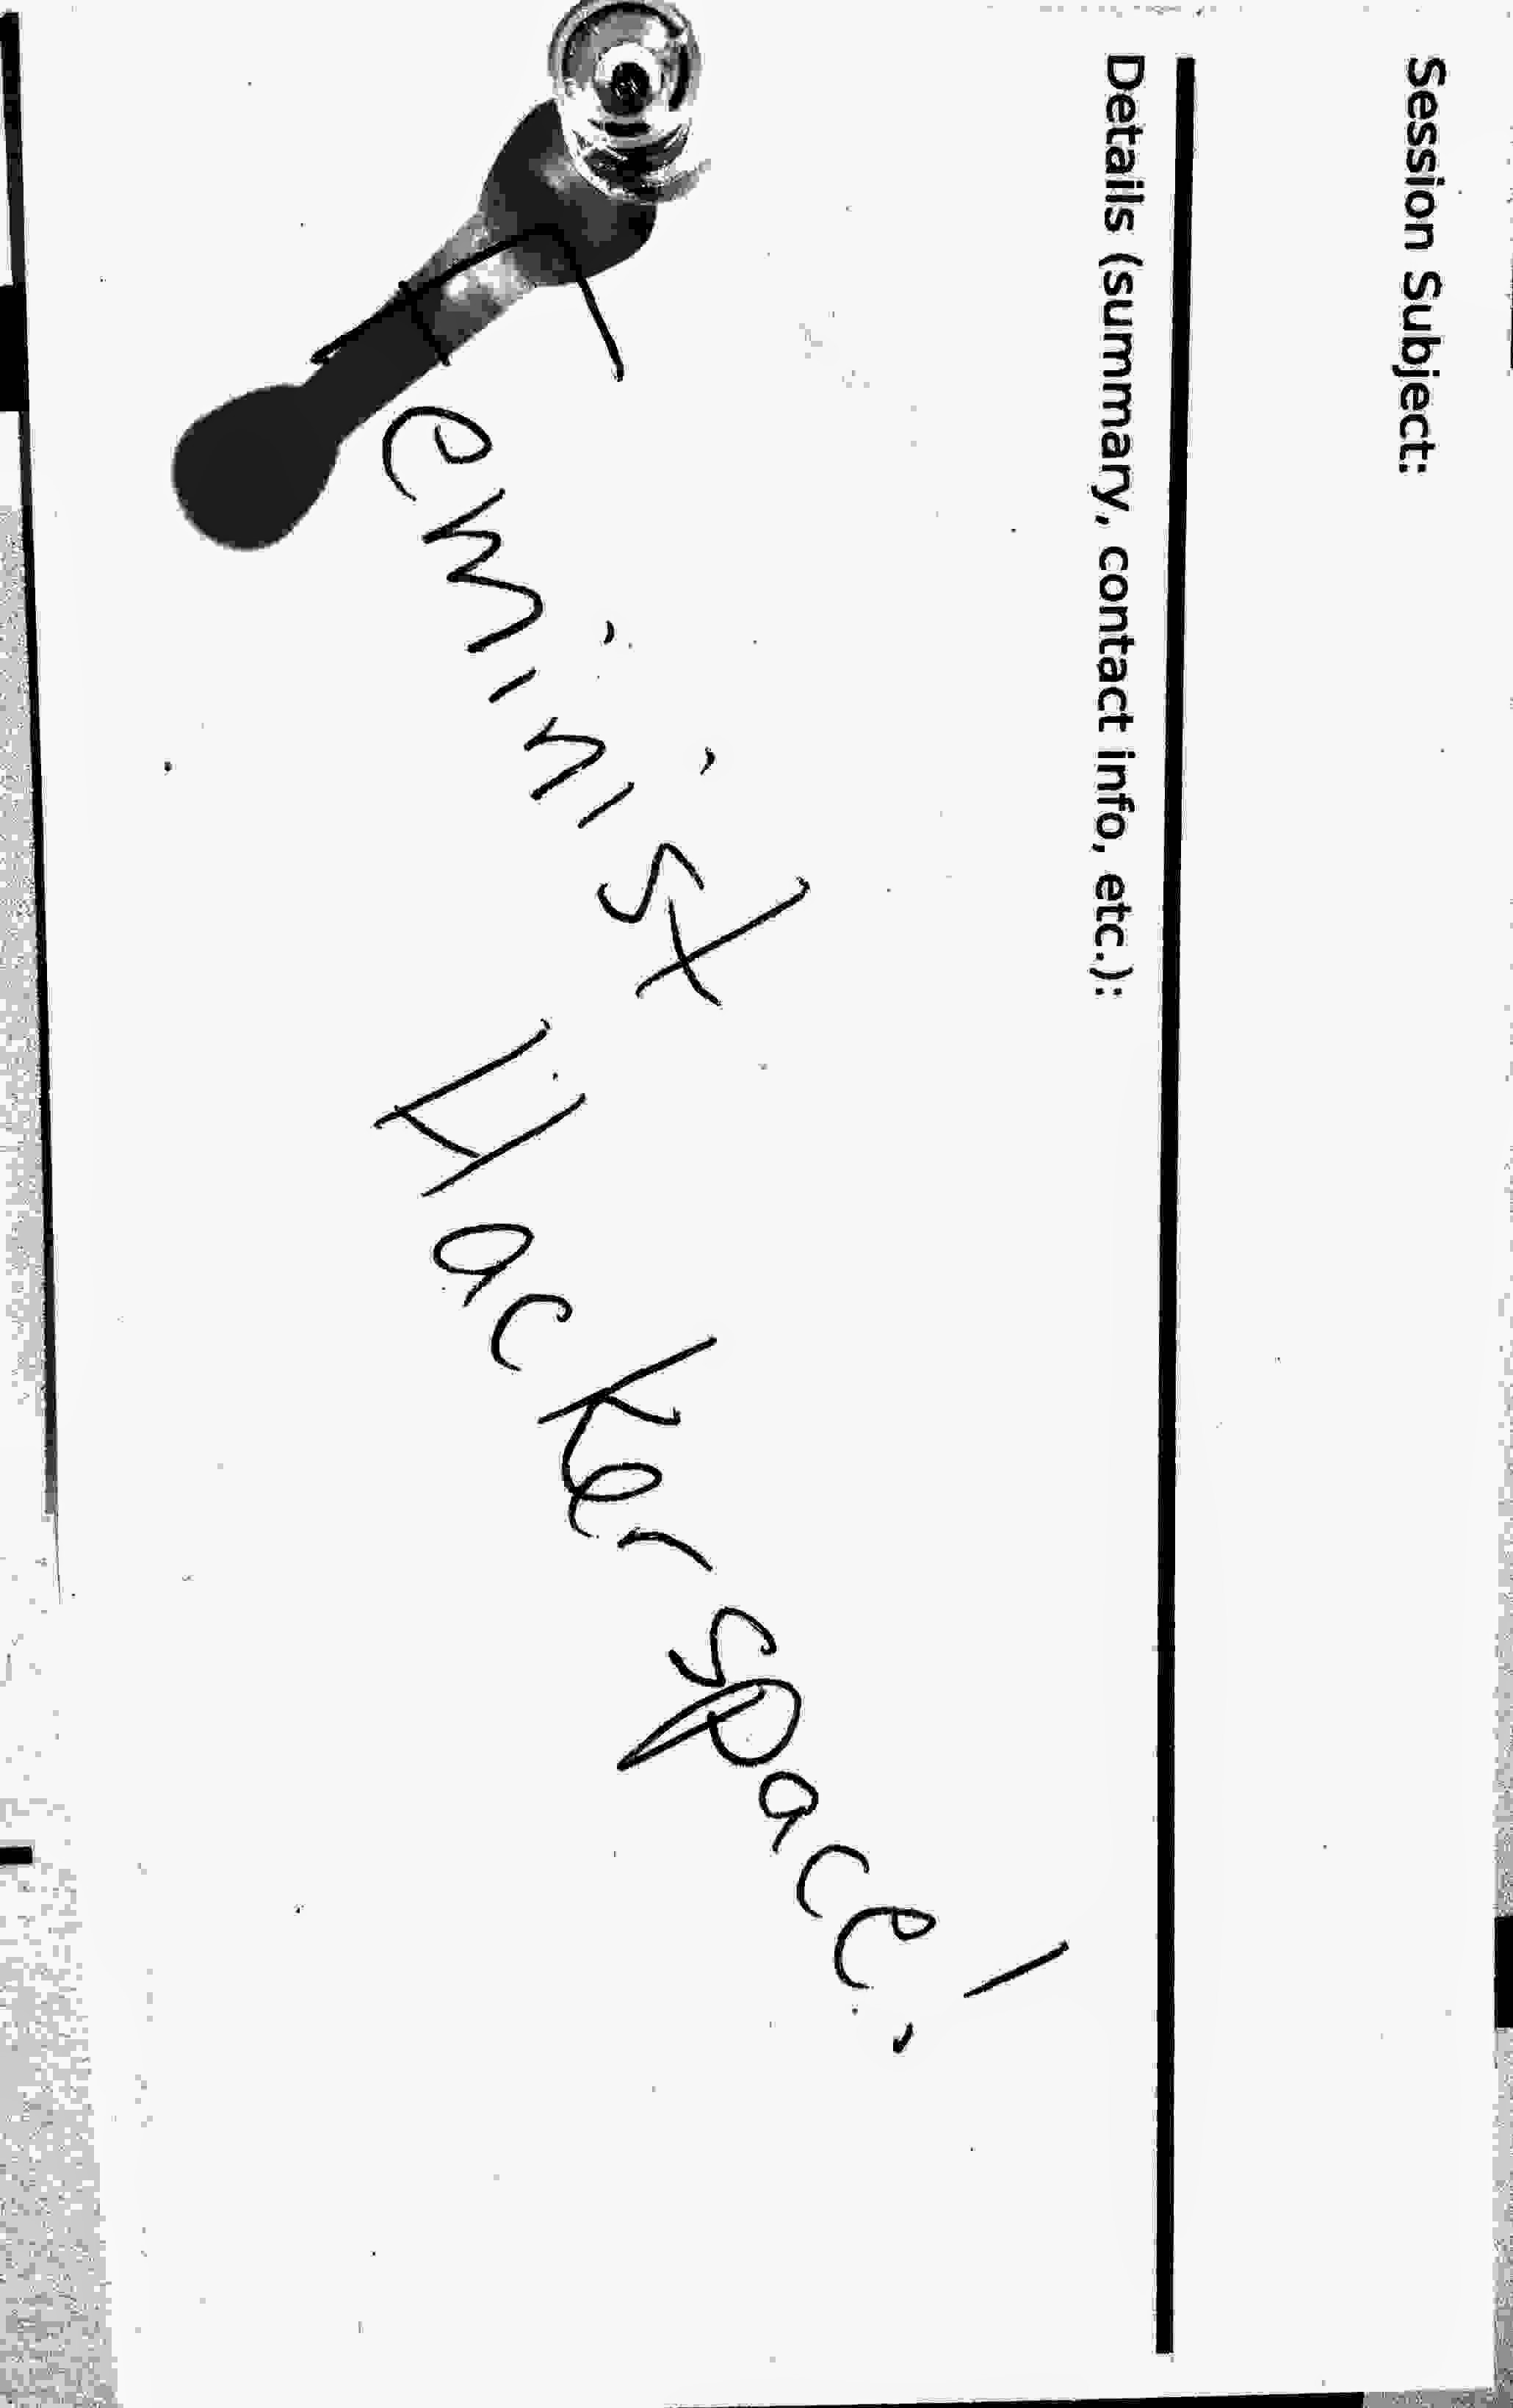 Session Subject:
Details (summary, contact info, etc.):
Feminist Hackerspace!